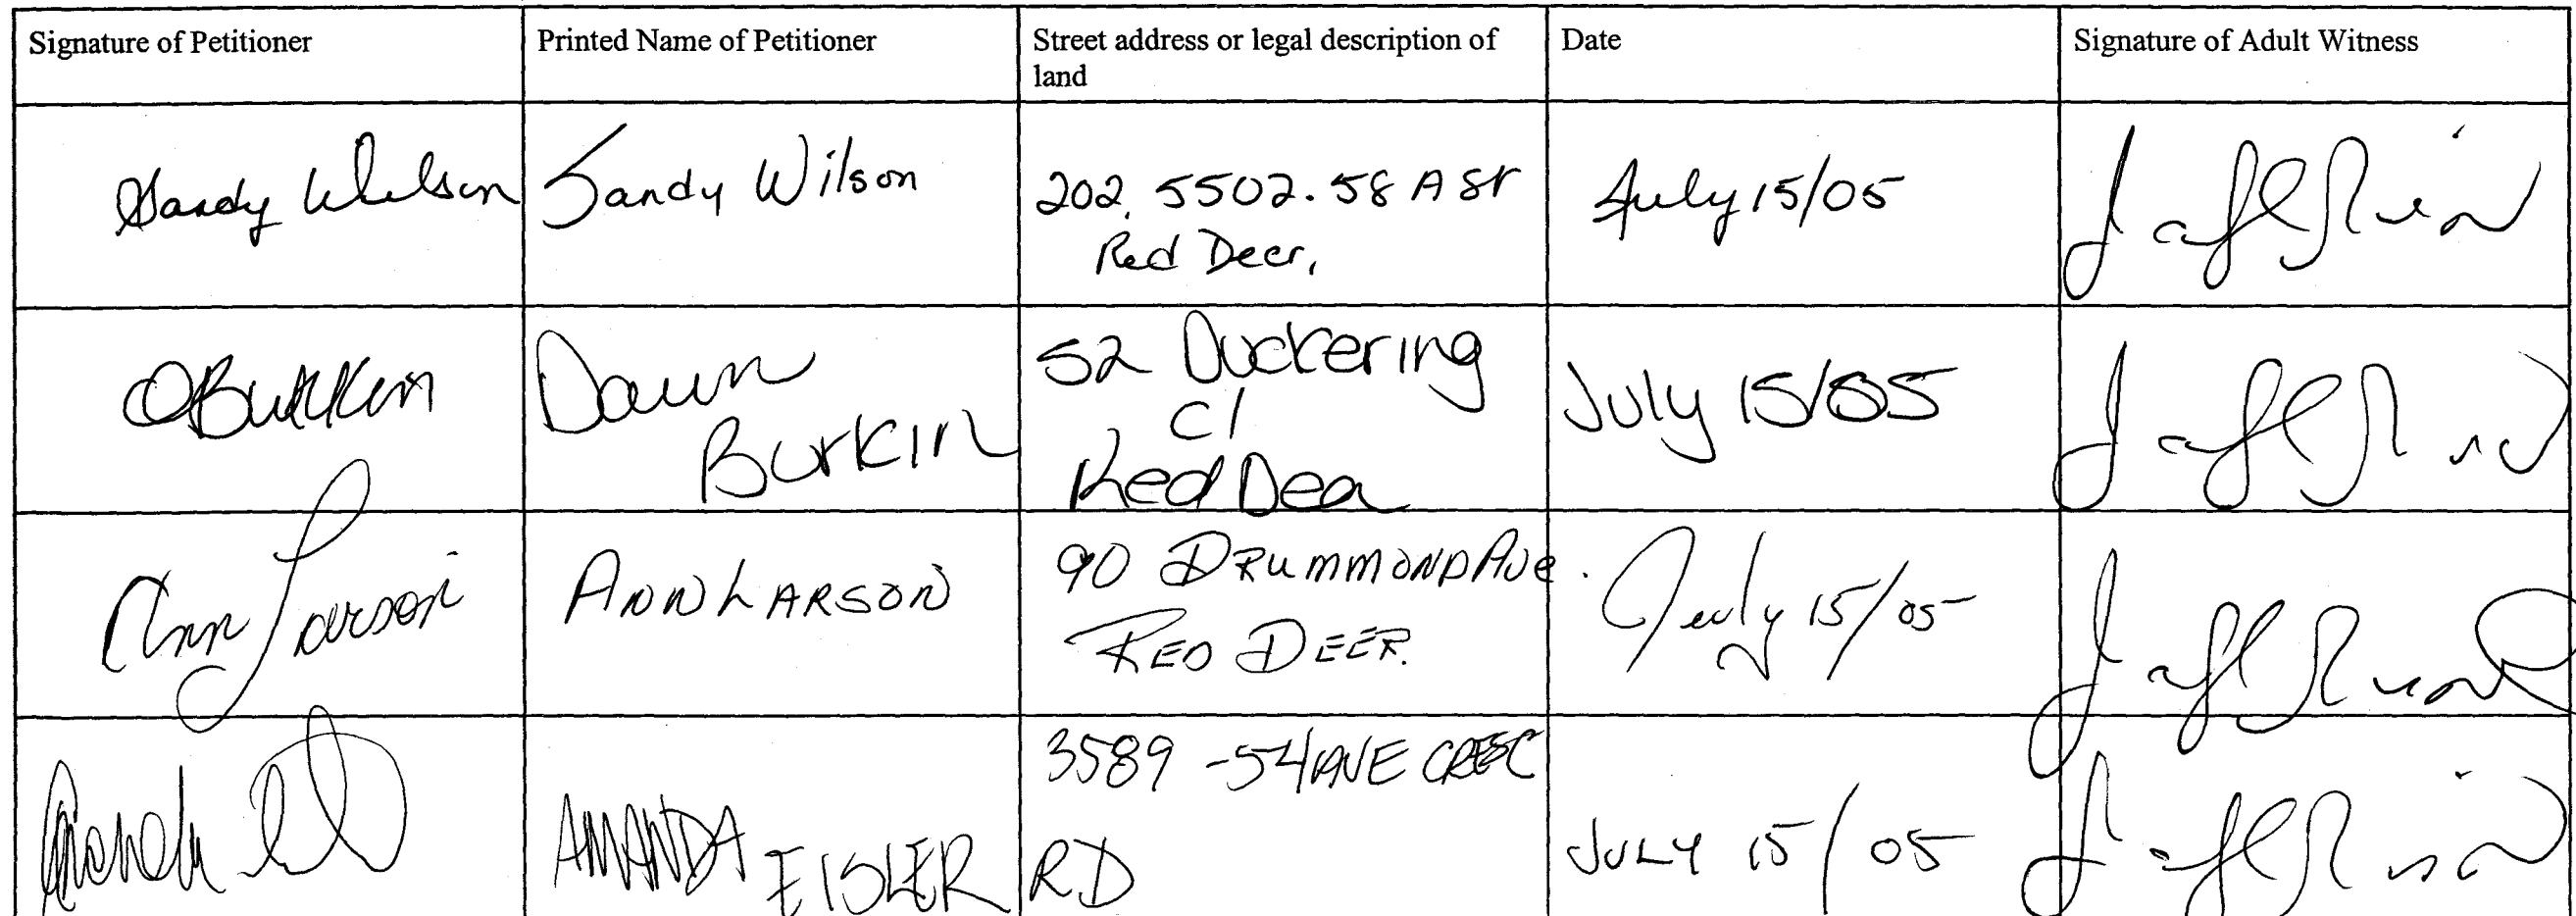 Signature of Petitioner
Printed Name of Petitioner
Street address or legal description of
land
Date
Signature of Adult Witness
Sandy Wilson
Sandy Wilson
202, 5502. 58 A St
Red Deer,
July 15/05
DBurkin
Dawn
Burkin
52 Duckering
Cl
Red Deer
July 15/05
Ann Larson
ANN LARSON
90 DRUMMOND AVE.
RED DEER.
July 15/05
AMANDA
EISLER
3589 -54 AVE CRESC
RD
JULY 15/05